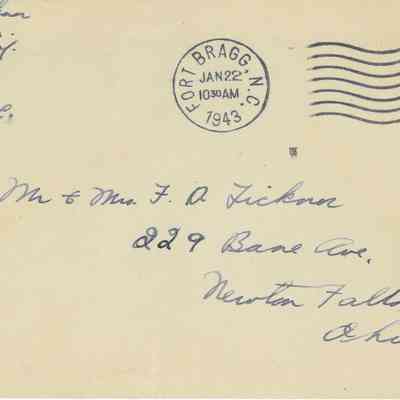 FORT BRAGG, N.C.
JAN 22
10 30 AM
1943
Mr & Mrs. F. A. Tickner
229 Bane Ave.
Newton Falls
Ohio